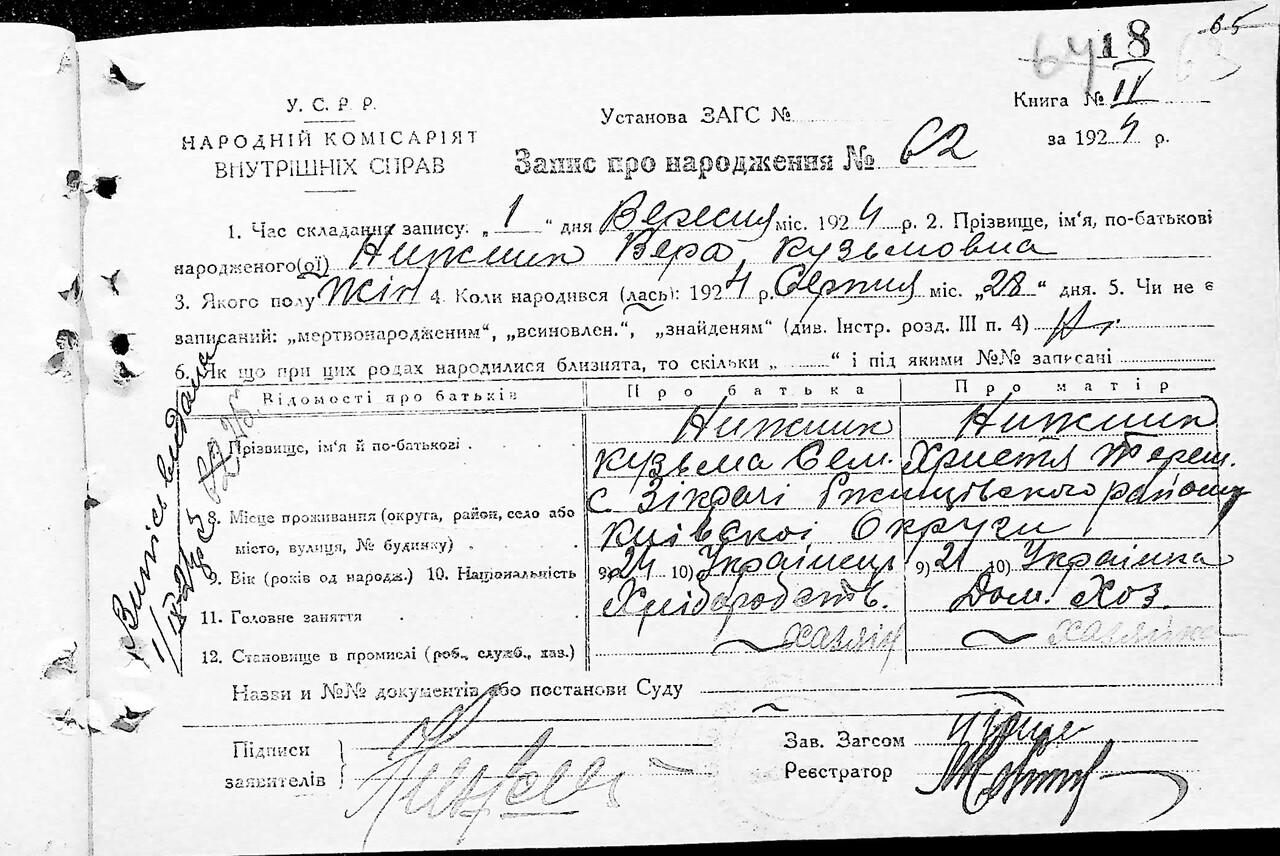 65
64 18 63
У. С. Р. Р.
НАРОДНІЙ КОМІСАРІЯТ
ВНУТРІШНІХ СПРАВ
Установа ЗАГС №
Книга № II
за 1924 р.
Запис про народження № 62
1. Час складання запису: „1“ дня Вересня міс. 1924 р. 2. Прізвище, ім'я, по-батькові
народженого(ої) Нижник Вера Кузьмовна
3. Якого полу Жін 4. Коли народився (лась): 1924 р. Серпня міс. „28“ дня. 5. Чи не є
записаний: „мертвонародженим“, „всиновлен.“, „знайденям“ (див. Інстр. розд. III п. 4) Ні
6. Як що при цих родах народилися близнята, то скільки „ “ і під якими №№ записані
Відомості про батьків Про батька Про матір
7. Прізвище, ім'я й по-батькові . Нижник Нижник
Кузьма Сем. Христя Тереш.
с Зікрачі Ржищівского району
8. Місце проживання (округа, район, село або
місто, вулиця, № будинку) . Київскоі Округи
9. Вік (років од народж.) 10. Національність 9) 24 10) Українець 9) 21 10) Українка
11. Головне заняття Хліборобств. Дом. Хоз.
12. Становище в промислі (роб., служб., хаз.) хазяїн хазяйка
Назви и №№ документів або постанови Суду
Підписи
заявителів
Зав. Загсом
Реєстратор
Випісь видана